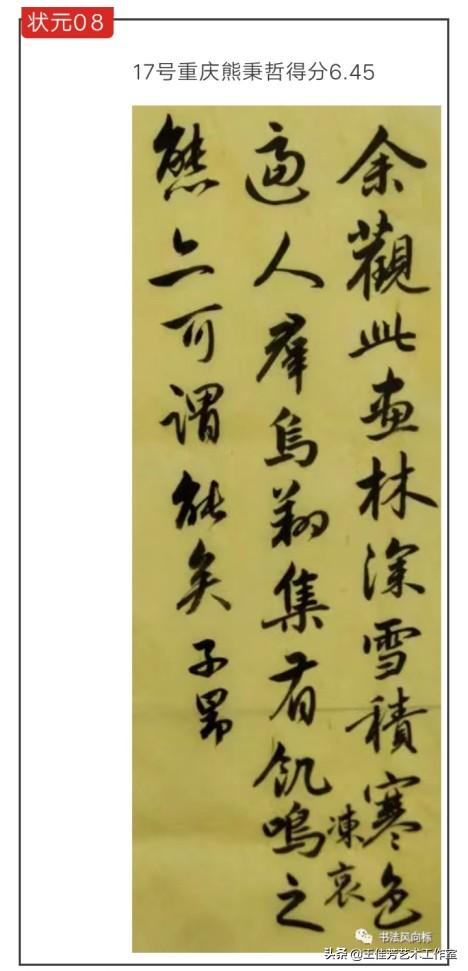 状元08
17号重庆熊秉哲得分6.45
余觀此畫林深雪積寒色
逼人羣烏翔集有飢鳴之
凍哀
態亦可謂能矣子昂
书法风向标
头条 @王佳芳艺术工作室